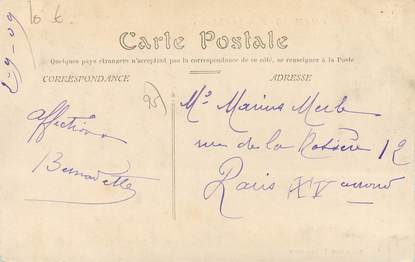 2-9-09
10 €
Carte Postale
Quelques pays étrangers n'acceptant pas la correspondance de ce côté, se renseigner à la Poste
CORRESPONDANCE
ADRESSE
95
Affection
Bernadette
Mr Marius Merle
rue de la Rosière 12
Paris XV arrond